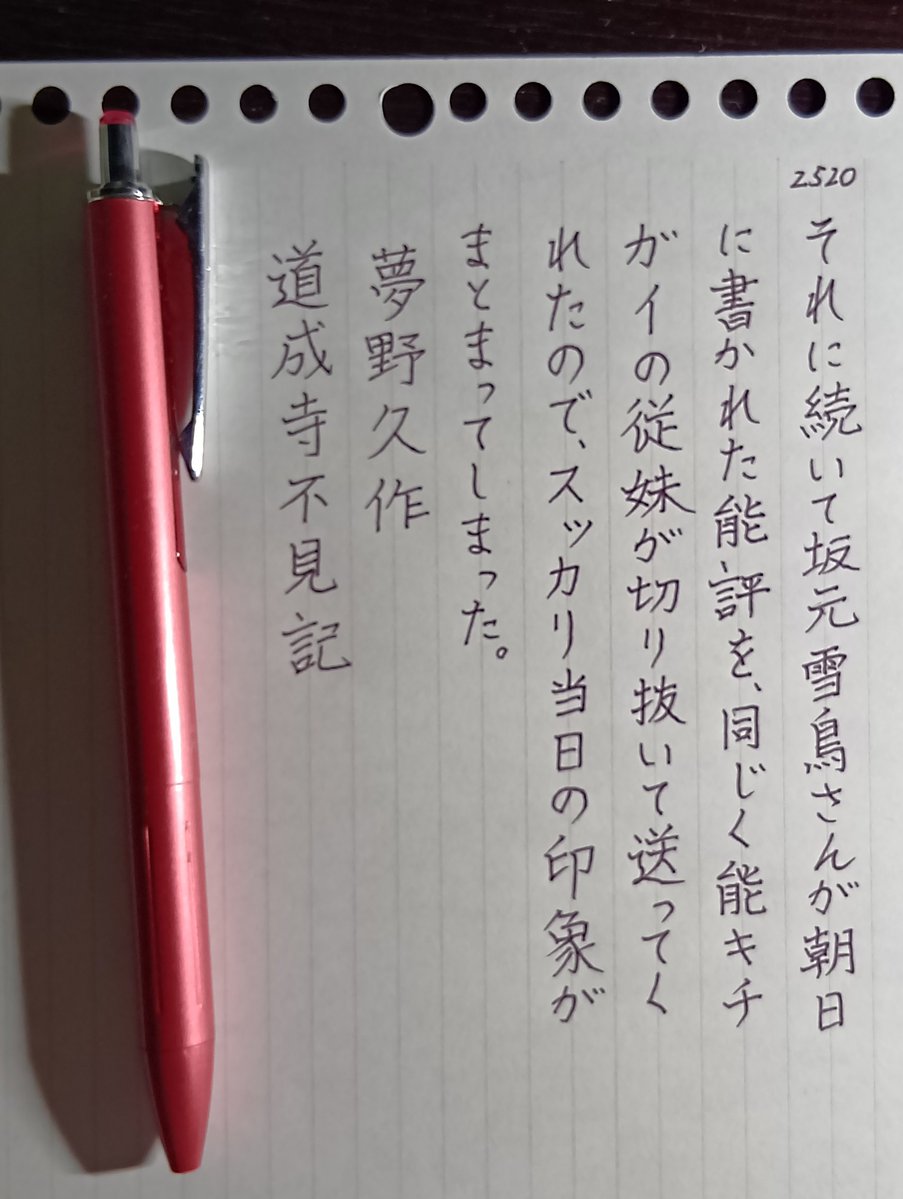 2520
それに続いて坂元雪鳥さんが朝日
に書かれた能評を、同じく能キチ
ガイの従妹が切り抜いて送ってく
れたので、スッカリ当日の印象が
まとまってしまった。
夢野久作
道成寺不見記